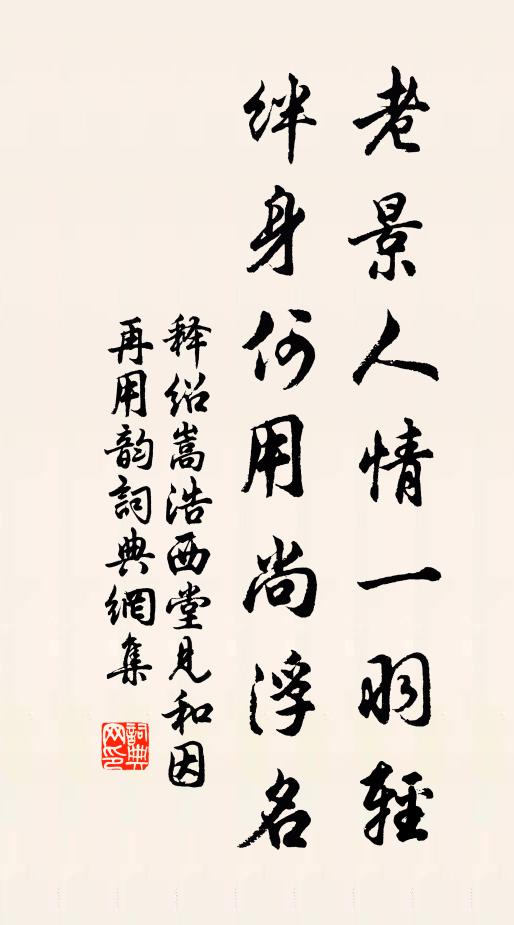 老景人情一羽輕
絆身何用尚浮名
释绍嵩浩西堂見和因
再用韵詞典網集
詞典网印